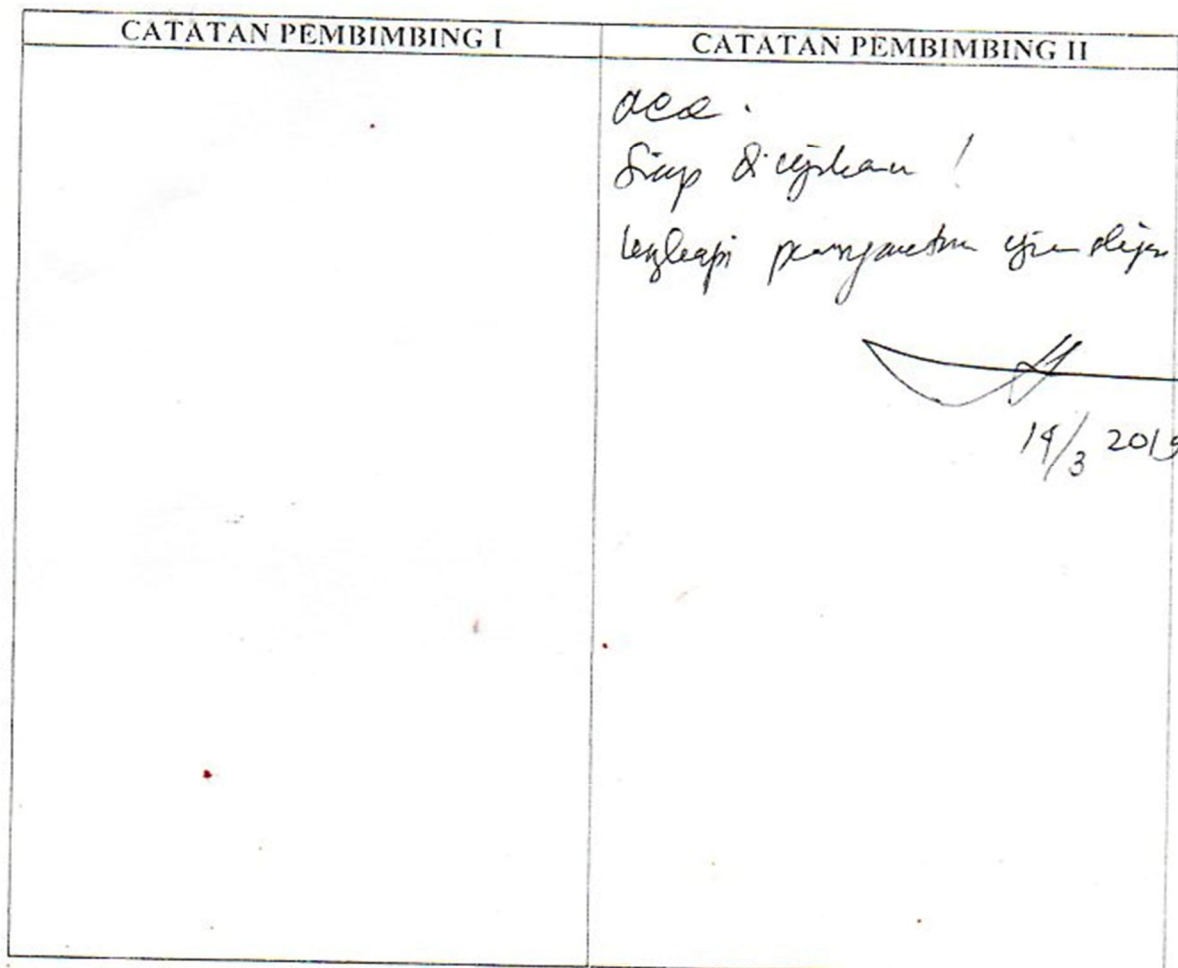 CATATAN PEMBIMBING I
CATATAN PEMBIMBING II
acc.
Siap diujikan!
lengkapi persyaratan ujian
14/3 2019